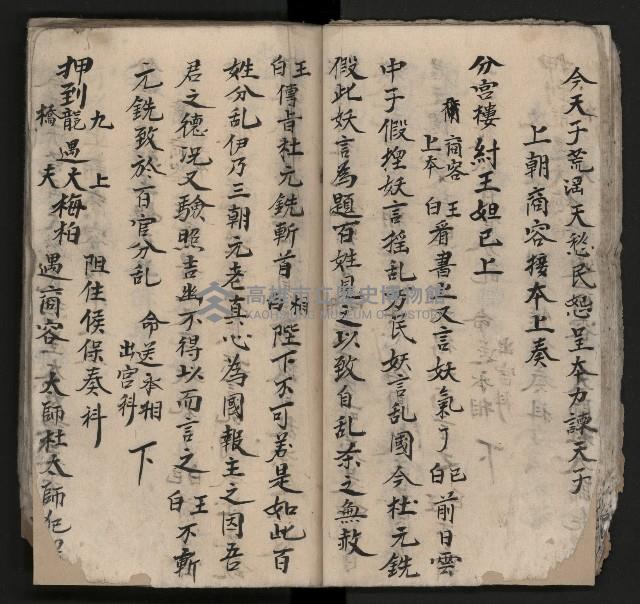 今天子荒淫天愁民怨呈本力諫天子
上朝商容接本上奏
分宮樓 紂王妲己上
商容上本 王白 看書上又言妖氣了 己白 前日雲
中子假捏妖言搖乱万民妖言乱國今杜元銑
假此妖言為題百姓見之以致自乱杀之無赦
王白 傳旨杜元銑斬首 相白 陛下不可若是如此百
姓分乱伊乃三朝元老真心為國報主之因吾
君之德况又驗照吉凶不得以而言之 王白 不斬
元銑致於百官分乱 命送丞相出宮科 下
押到九龍橋遇上大夫梅柏 阻住侯保奏科
遇商容 太師杜太師犯
高雄市立歷史博物館
KAOHSIUNG MUSEUM OF HISTORY